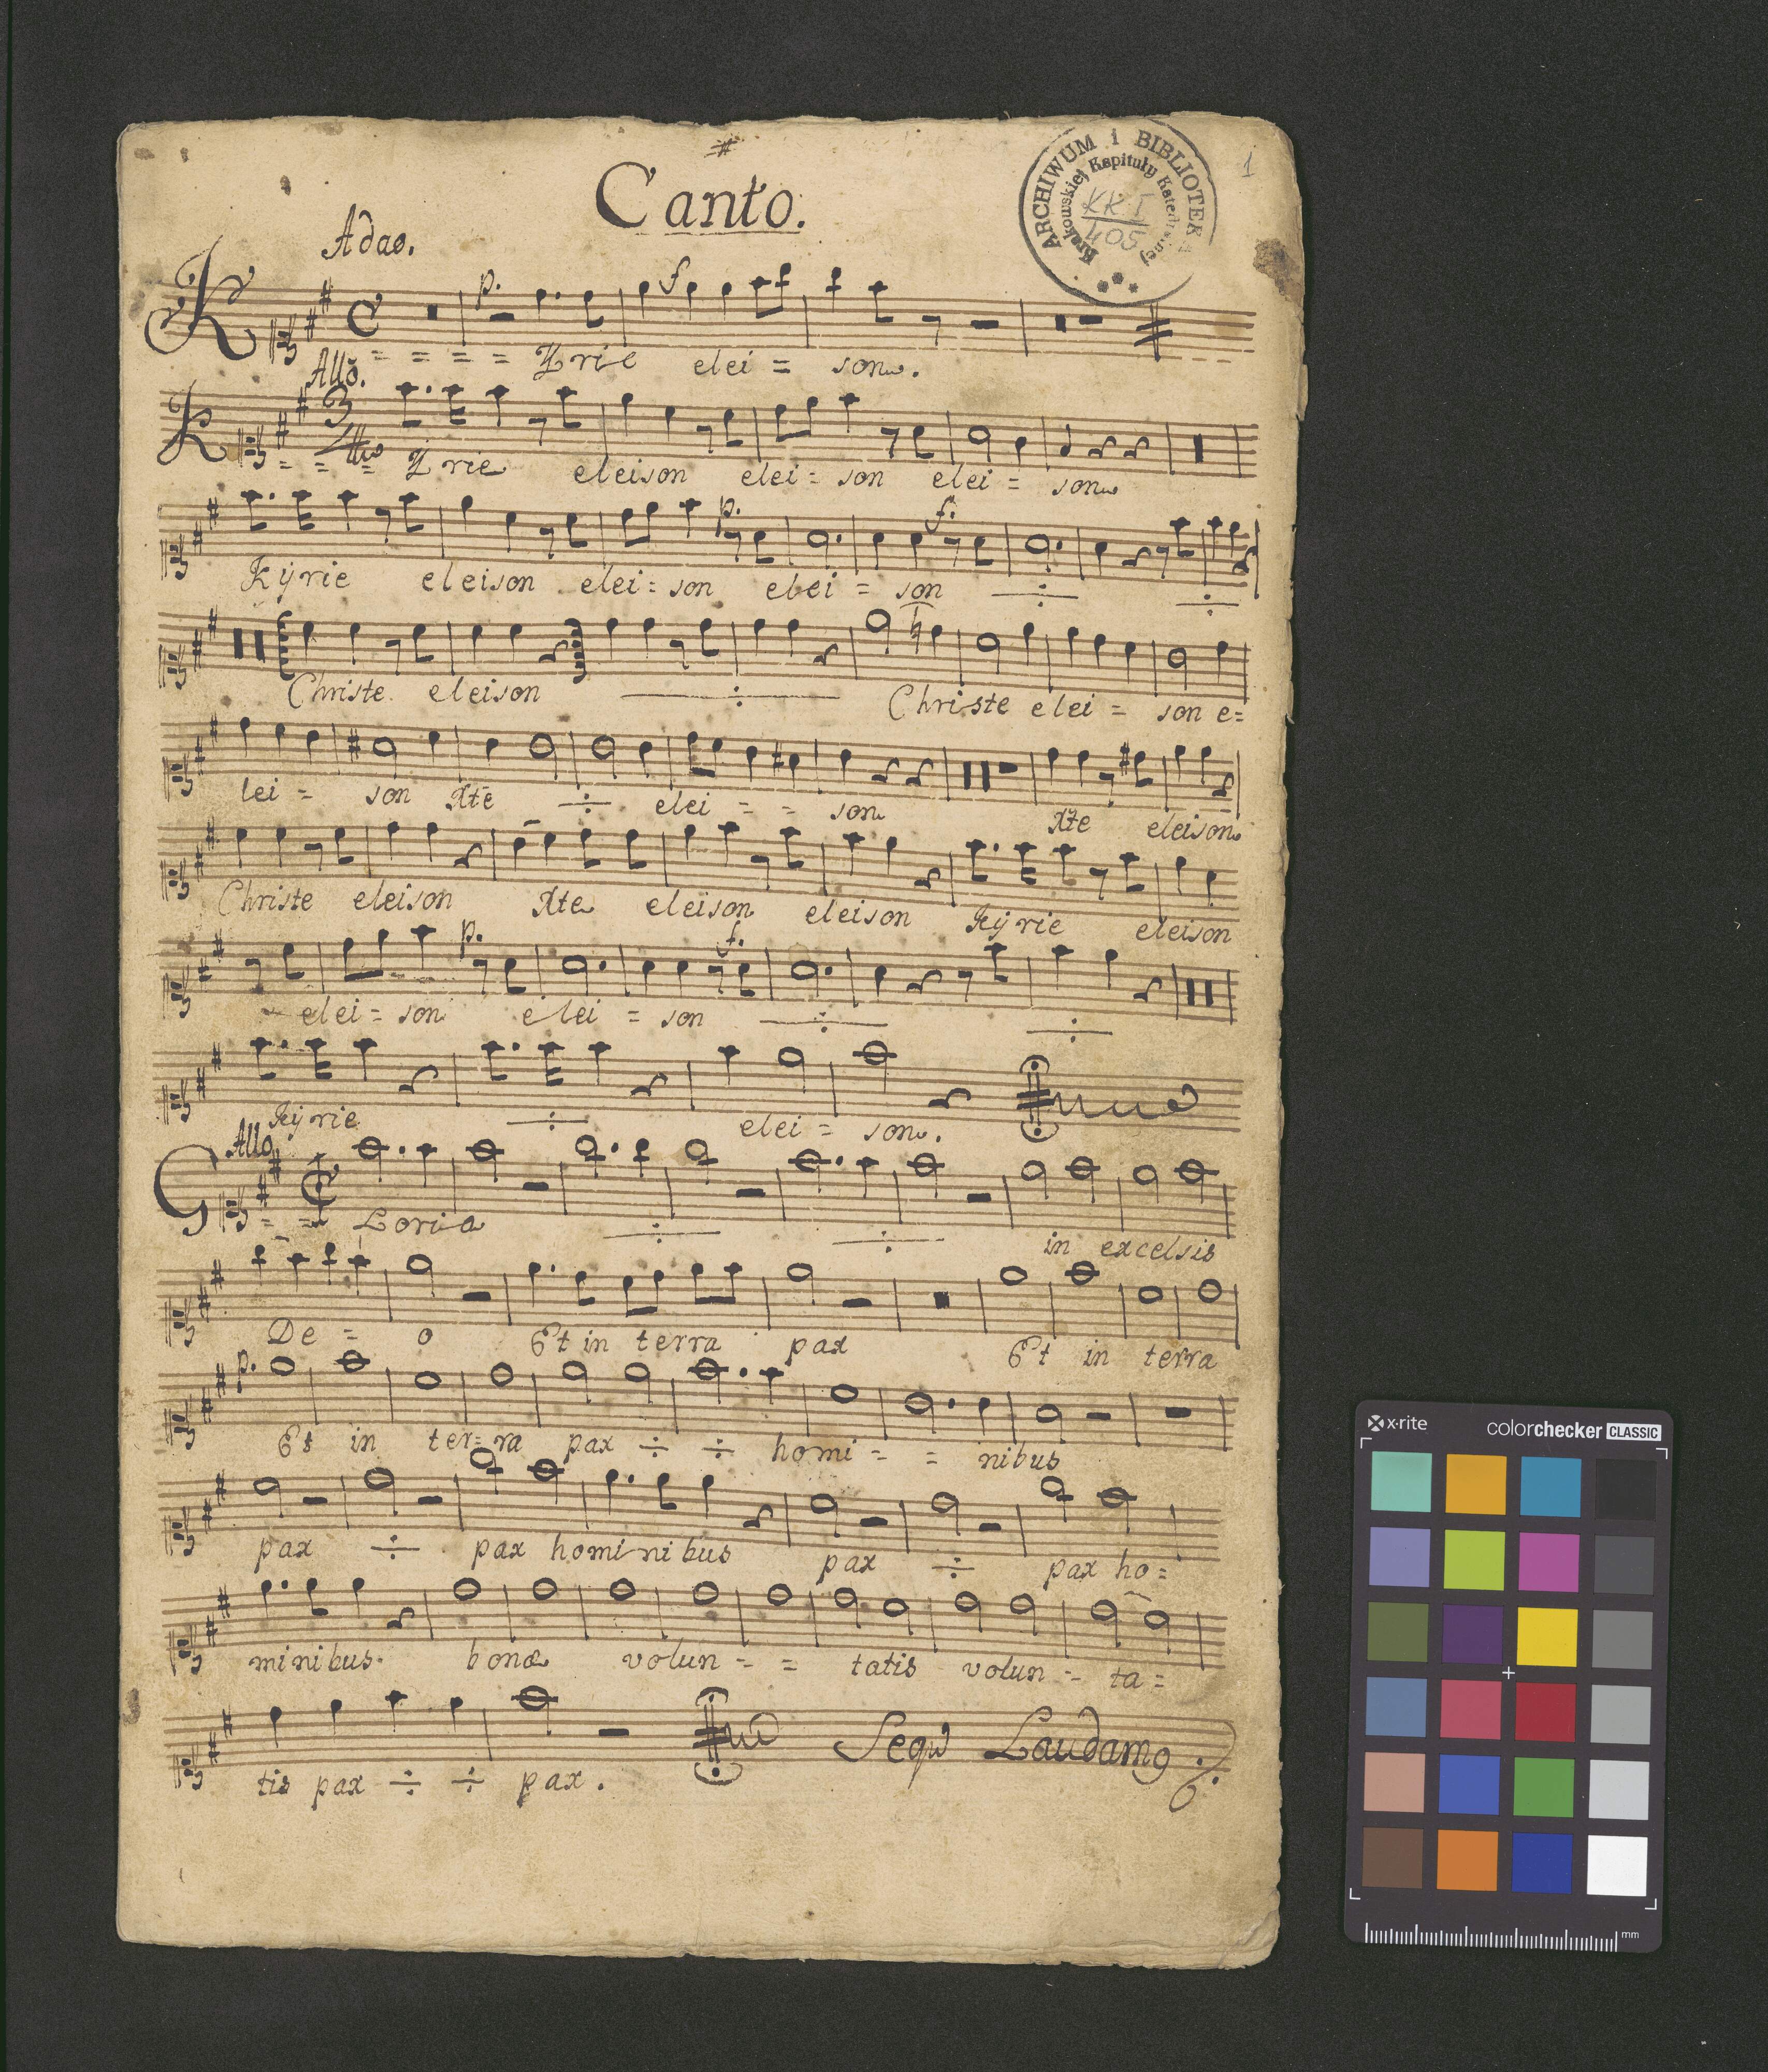 1
ARCHIWUM i BIBLIOTEKA
Krakowskiej Kapituły Katedralnej
KK I
405
Canto.
Adao.
p. f
K = = = = yrie elei = son.
Allo.
3
K = = = yrie eleison elei = son elei = son
p. f.
Kyrie eleison elei = son elei = son ÷ ÷
Christe eleison ÷ Christe elei = son e=
lei = son Xte ÷ elei = = son Xte eleison
Christe eleison Xte eleison eleison Kyrie eleison
p. f.
elei = son elei = son ÷ ÷
Kyrie ÷ elei = son.
Allo
G = = Loria ÷ ÷ in excelsis
De = o Et in terra pax Et in terra
p.
Et in ter= ra pax ÷ ÷ homi = = nibus
pax ÷ pax hominibus pax ÷ pax ho=
minibus. bonæ volun = = tatis volun = ta =
tis pax ÷ ÷ pax. Seqr Laudamg
x-rite
colorchecker CLASSIC
mm